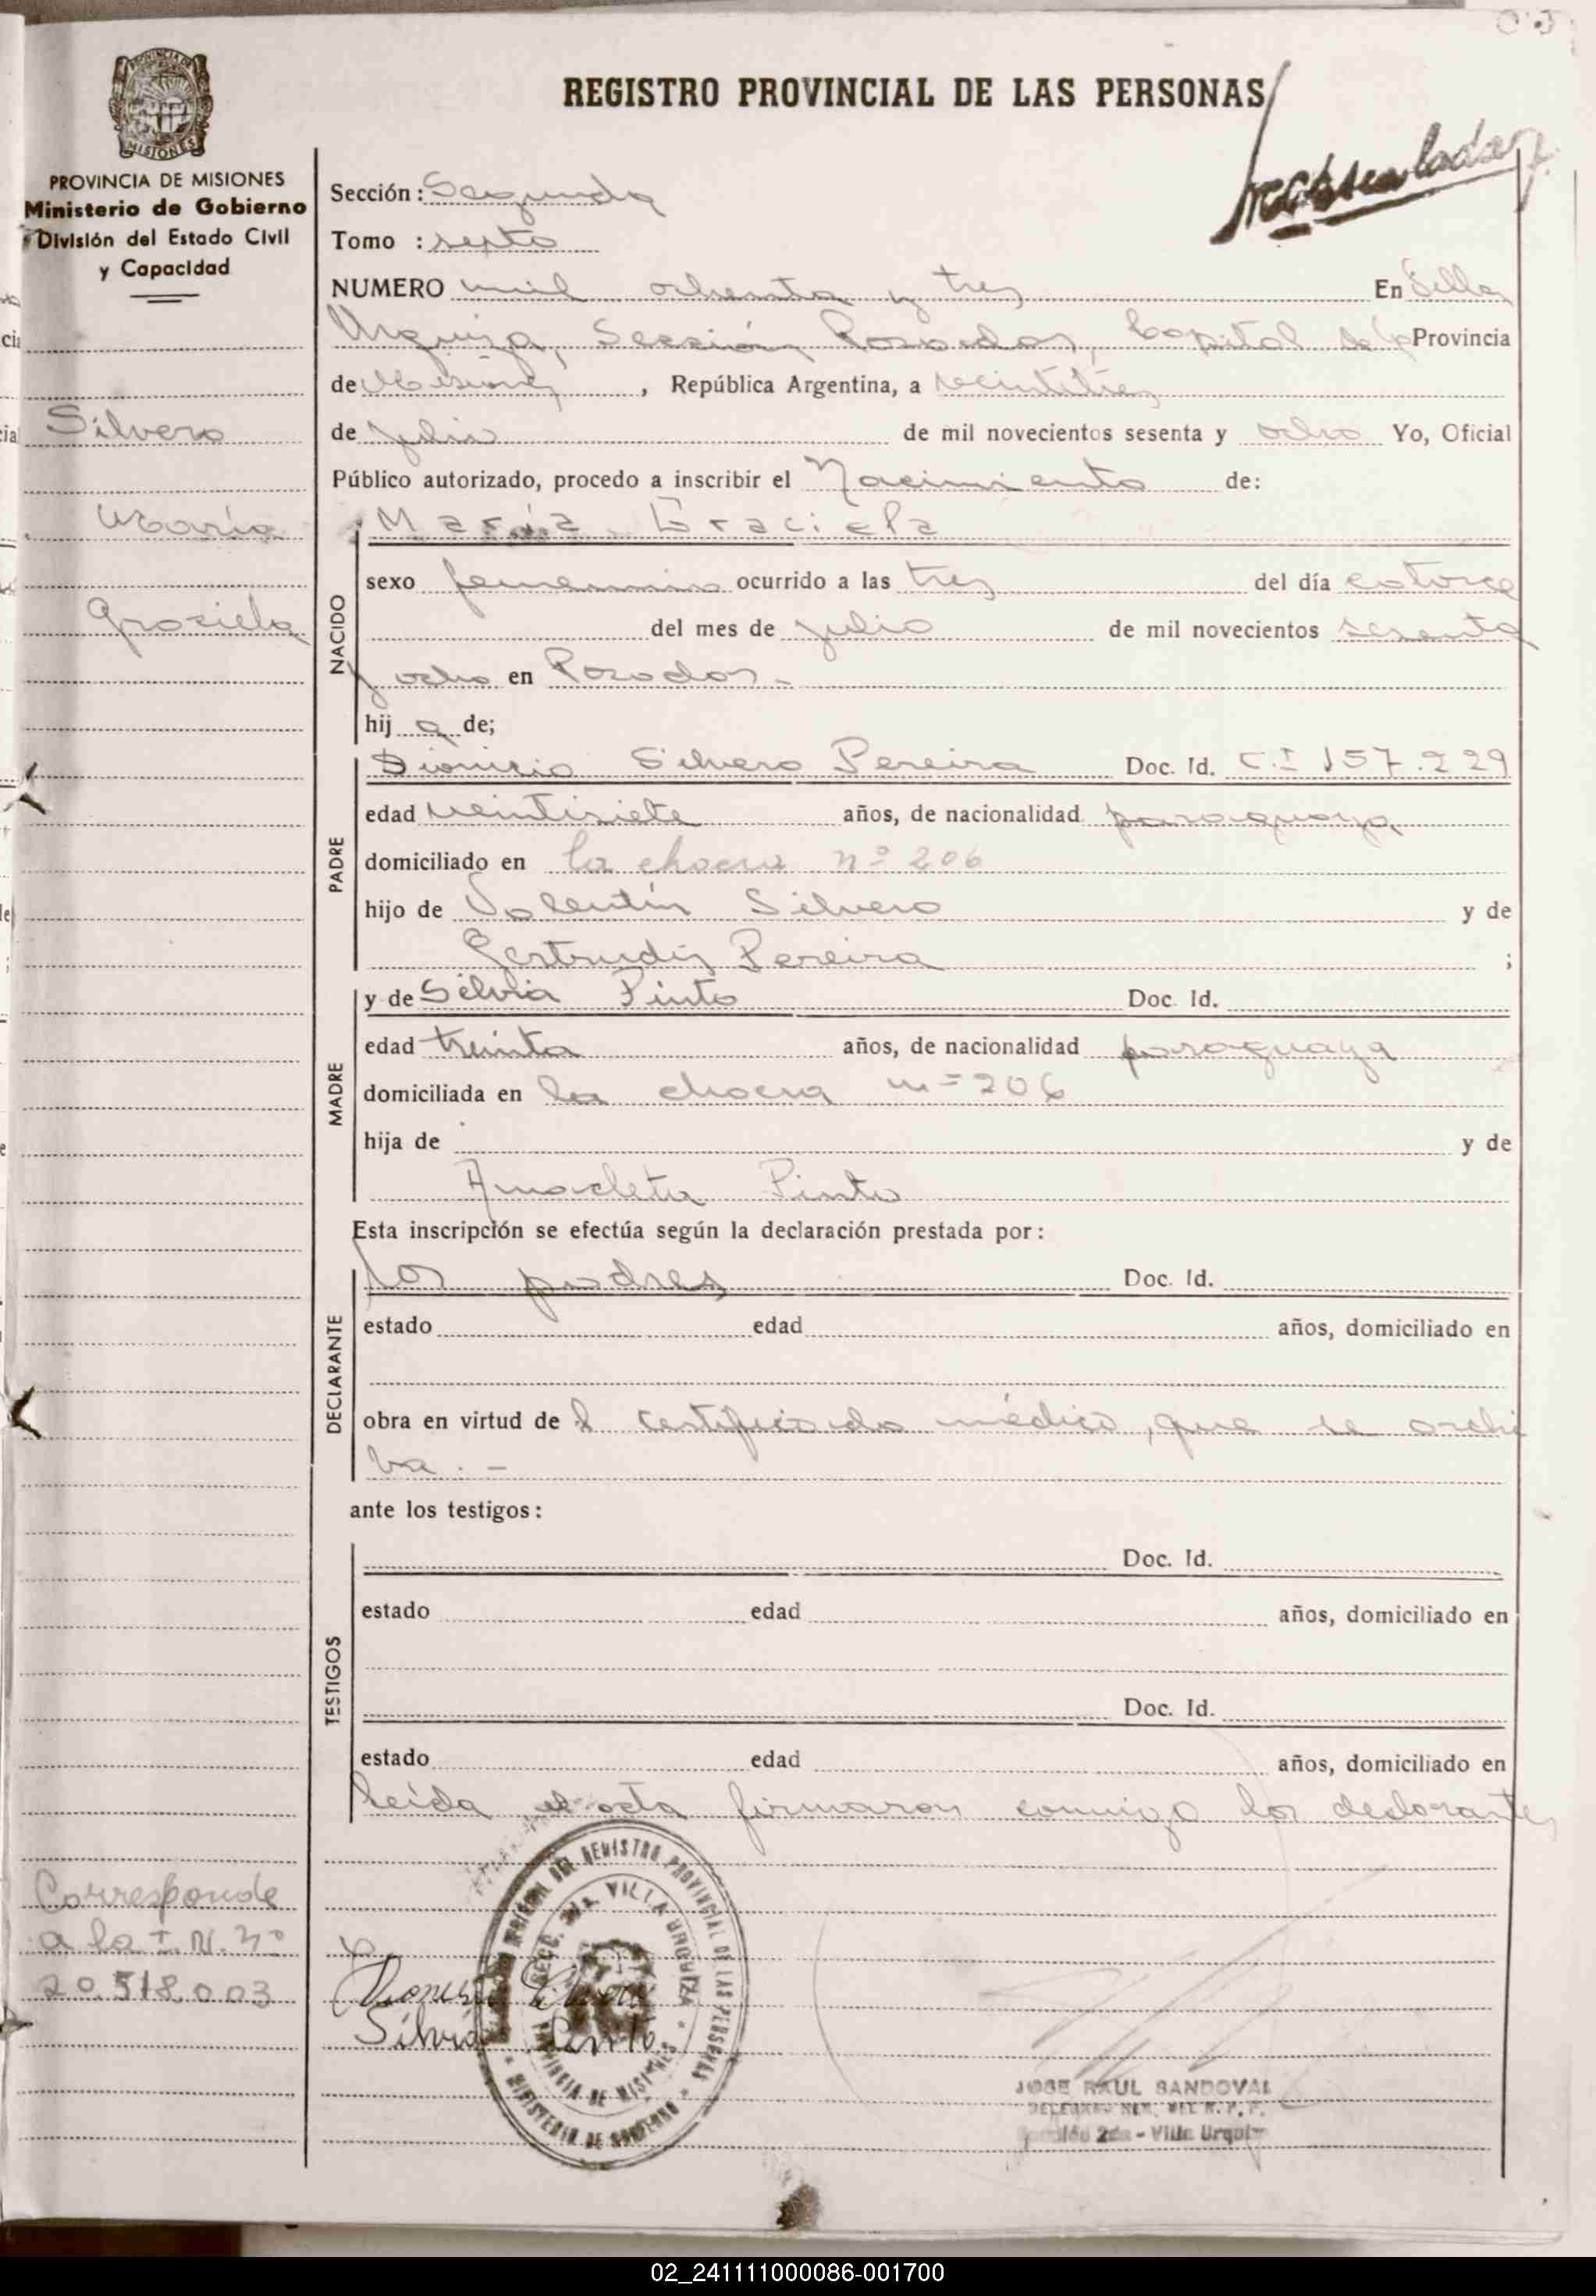 REGISTRO PROVINCIAL DE LAS PERSONAS
MISIONES
PROVINCIA DE MISIONES
Ministerio de Gobierno
División del Estado Civil
y Capacidad
Silvero
María
Graciela
Corresponde
a la I. N. nº
20.518.003
Sección: Segunda
Tomo : sexto
NUMERO mil ochenta y tres En Villa
Urquiza, Sección Posadas, Capital de la Provincia
de Misiones, República Argentina, a veintitres
de julio de mil novecientos sesenta y ocho Yo, Oficial
Público autorizado, procedo a inscribir el Nacimiento de:
María Graciela
NACIDO
sexo femenino ocurrido a las tres del día catorce
del mes de julio de mil novecientos sesenta
y ocho en Posadas.-
hij a de;
PADRE
Dionisio Silvero Pereira Doc. Id. C.I 157.229
edad veintisiete años, de nacionalidad paraguaya
domiciliado en la chacra nº 206
hijo de Valentín Silvero y de
Gertrudis Pereira ;
MADRE
y de Silvia Pinto Doc. Id.
edad treinta años, de nacionalidad paraguaya
domiciliada en la chacra nº 206
hija de y de
Anacleta Pinto
Esta inscripción se efectúa según la declaración prestada por:
DECLARANTE
los padres Doc. Id.
estado edad años, domiciliado en
obra en virtud de l certificado médico, que se archi
va.-
ante los testigos:
TESTIGOS
Doc. Id.
estado edad años, domiciliado en
Doc. Id.
estado edad años, domiciliado en
Leída el acta firmaron conmigo los declarantes
Silvia Pinto
REGISTRO PROVINCIAL DE LAS PERSONAS
SECC. 2da. VILLA URQUIZA
PROVINCIA DE MISIONES
MINISTERIO DE GOBIERNO
JOSE RAUL SANDOVAL
Sección 2da - Villa Urquiza
02_241111000086-001700